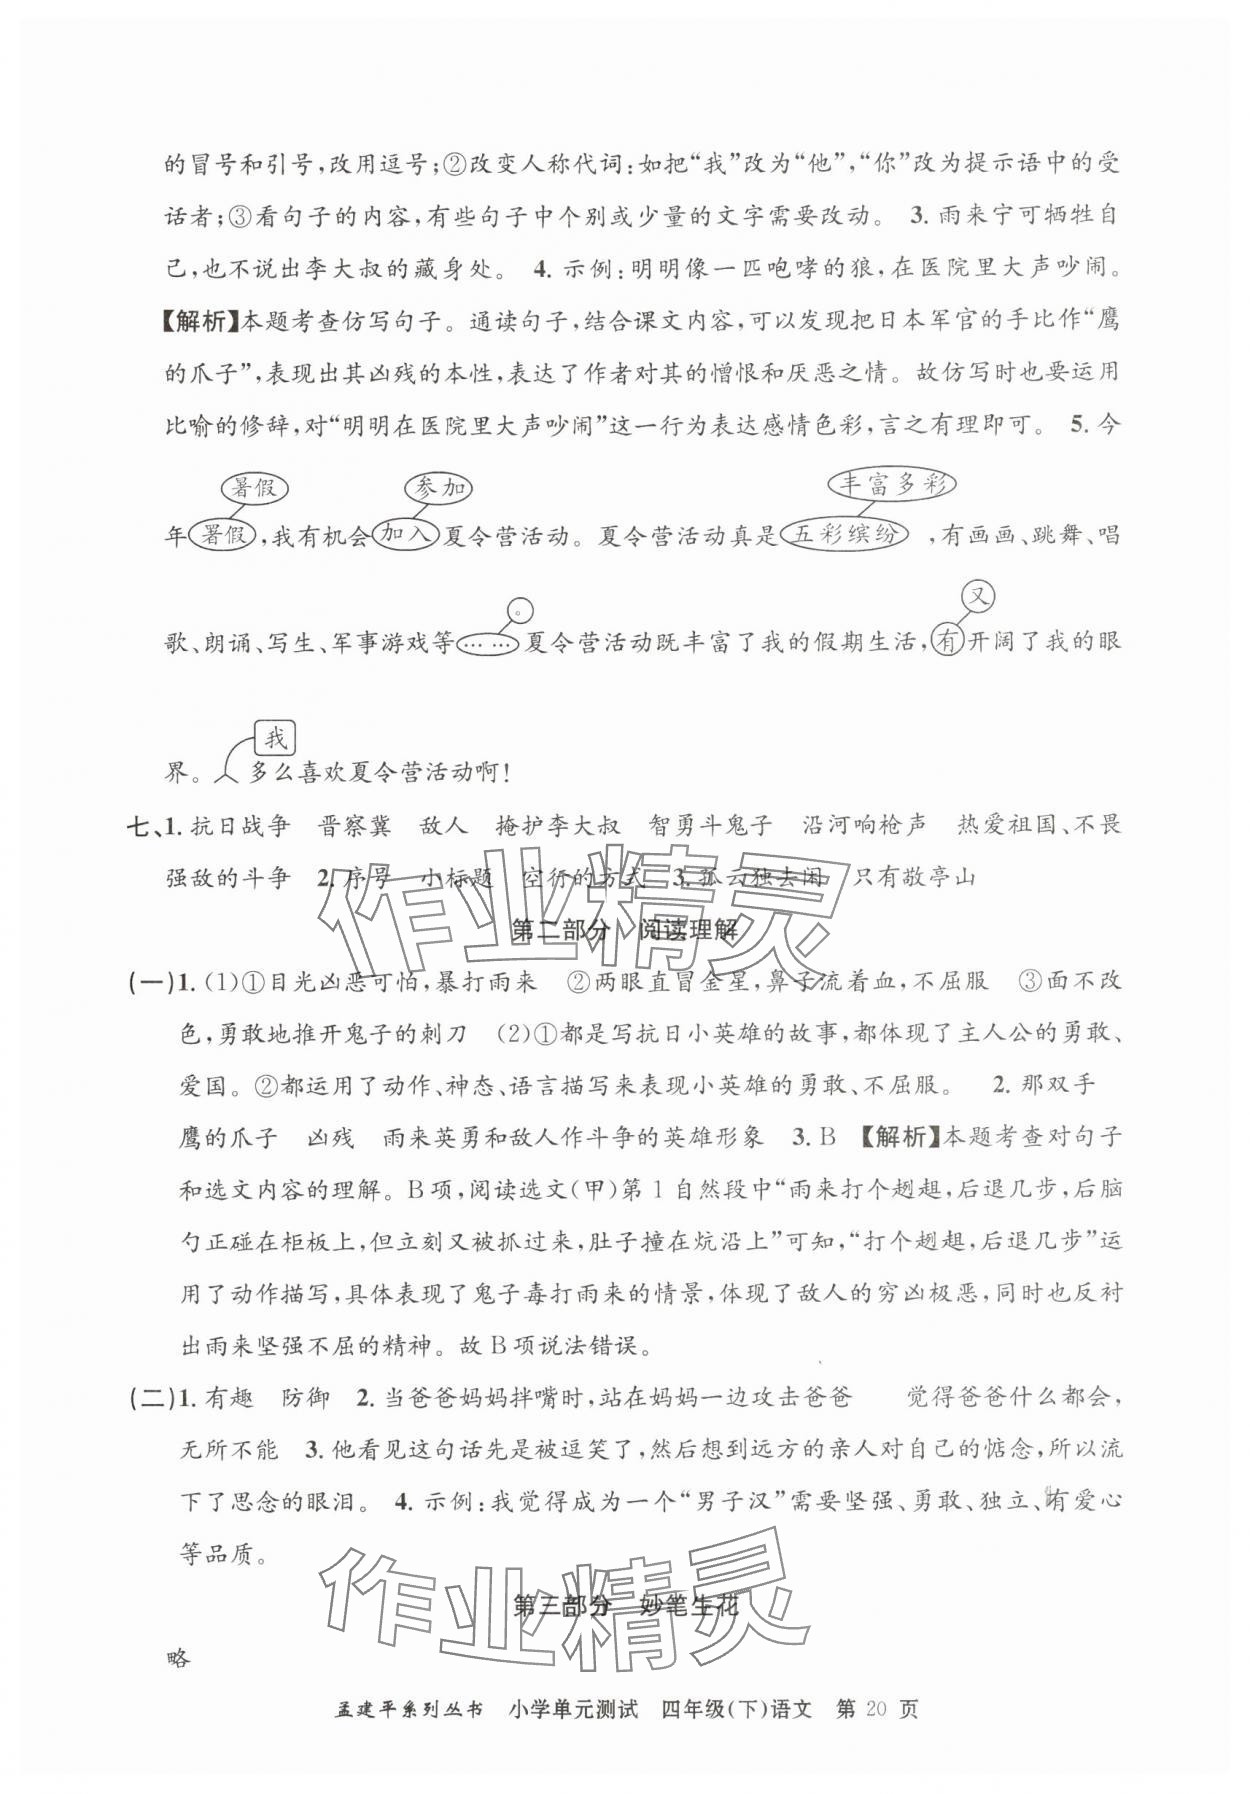 的冒号和引号,改用逗号;②改变人称代词:如把“我”改为“他”,“你”改为提示语中的受
话者;③看句子的内容,有些句子中个别或少量的文字需要改动。 3. 雨来宁可牺牲自
己,也不说出李大叔的藏身处。 4. 示例:明明像一匹咆哮的狼,在医院里大声吵闹。
【解析】本题考查仿写句子。通读句子,结合课文内容,可以发现把日本军官的手比作“鹰
的爪子”,表现出其凶残的本性,表达了作者对其的憎恨和厌恶之情。故仿写时也要运用
比喻的修辞,对“明明在医院里大声吵闹”这一行为表达感情色彩,言之有理即可。 5. 今
暑假 参加 丰富多彩
年暑假,我有机会加入夏令营活动。夏令营活动真是五彩缤纷,有画画、跳舞、唱
。 又
歌、朗诵、写生、军事游戏等……夏令营活动既丰富了我的假期生活,有开阔了我的眼
我
界。多么喜欢夏令营活动啊!
七、1. 抗日战争 晋察冀 敌人 掩护李大叔 智勇斗鬼子 沿河响枪声 热爱祖国、不畏
强敌的斗争 2. 序号 小标题 空行的方式 3. 孤云独去闲 只有敬亭山
第二部分 阅读理解
(一)1. (1)①目光凶恶可怕,暴打雨来 ②两眼直冒金星,鼻子流着血,不屈服 ③面不改
色,勇敢地推开鬼子的刺刀 (2)①都是写抗日小英雄的故事,都体现了主人公的勇敢、
爱国。②都运用了动作、神态、语言描写来表现小英雄的勇敢、不屈服。 2. 那双手
鹰的爪子 凶残 雨来英勇和敌人作斗争的英雄形象 3. B 【解析】本题考查对句子
和选文内容的理解。B项,阅读选文(甲)第1自然段中“雨来打个趔趄,后退几步,后脑
勺正碰在柜板上,但立刻又被抓过来,肚子撞在炕沿上”可知,“打个趔趄,后退几步”运
用了动作描写,具体表现了鬼子毒打雨来的情景,体现了敌人的穷凶极恶,同时也反衬
出雨来坚强不屈的精神。故B项说法错误。
(二)1. 有趣 防御 2. 当爸爸妈妈拌嘴时,站在妈妈一边攻击爸爸 觉得爸爸什么都会,
无所不能 3. 他看见这句话先是被逗笑了,然后想到远方的亲人对自己的惦念,所以流
下了思念的眼泪。 4. 示例:我觉得成为一个“男子汉”需要坚强、勇敢、独立、有爱心
等品质。
第三部分 妙笔生花
略
孟建平系列丛书 小学单元测试 四年级(下)语文 第20页
作业精灵
作业精灵